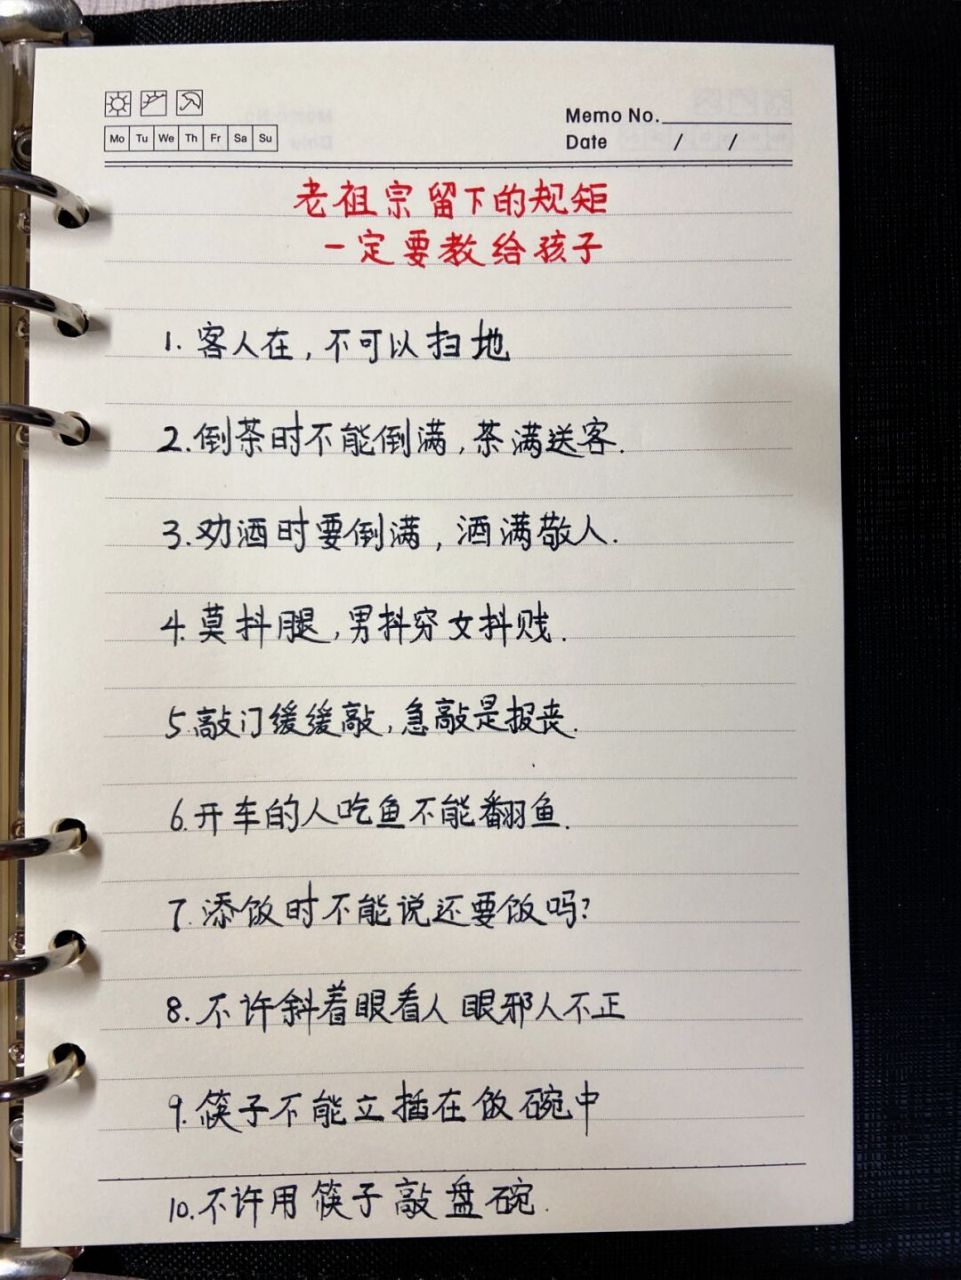 Mo Tu We Th Fr Sa Su
Memo No.
Date / /
老祖宗留下的规矩
一定要教给孩子
1. 客人在，不可以扫地
2.倒茶时不能倒满，茶满送客.
3.劝酒时要倒满，酒满敬人.
4.莫抖腿，男抖穷女抖贱.
5.敲门缓缓敲，急敲是报丧.
6.开车的人吃鱼不能翻鱼.
7.添饭时不能说还要饭吗?
8.不许斜着眼看人 眼邪人不正
9.筷子不能立插在饭碗中
10.不许用筷子敲盘碗.